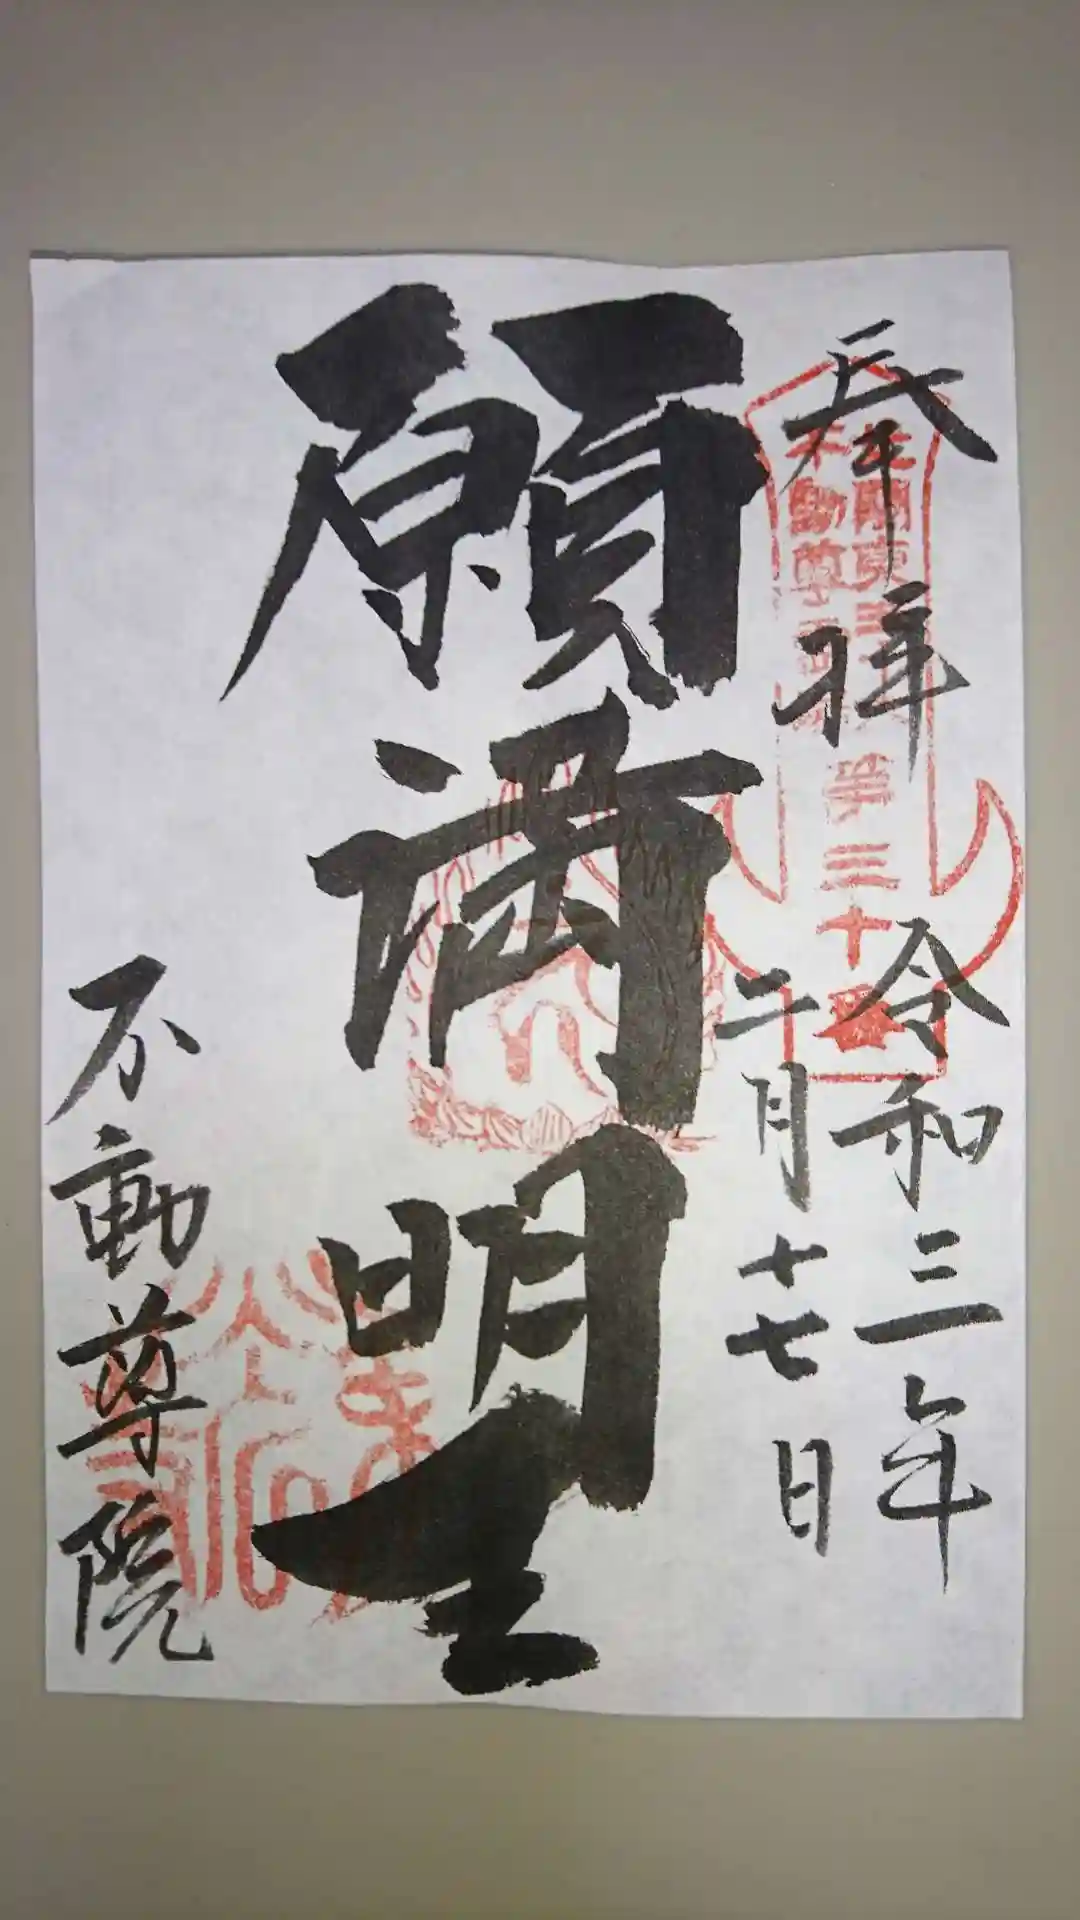 奉拝
令和三年
二月十七日
願満明王
不動尊院
北関東三十六
不動尊霊場
第三十番